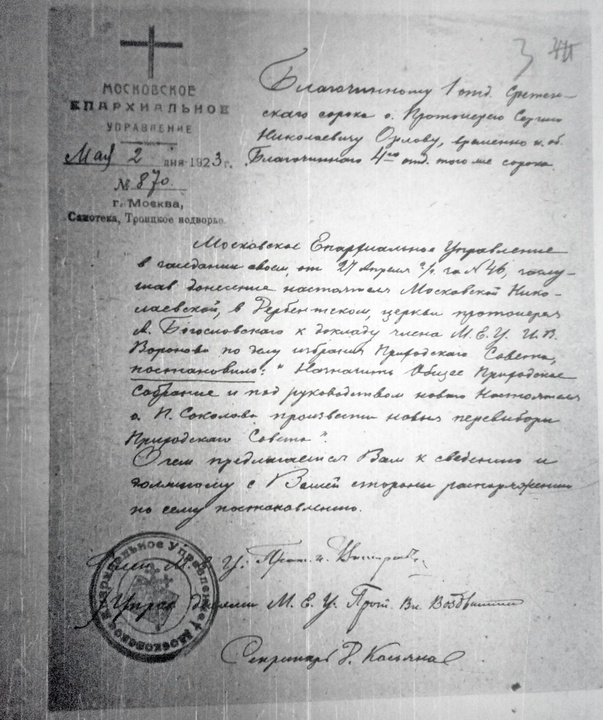 МОСКОВСКОЕ
ЕПАРХИАЛЬНОЕ
УПРАВЛЕНИЕ
Мая 2 дня 1923 г.
№ 870
г. Москва,
Самотека, Троицкое подворье.
Благочинному 1 отд. Сретен-
скаго сорока о. Протоиерею Сергию
Николаевичу Орлову, временно и. об.
Благочиннаго 4го отд. того же сорока.
Московское Епархиальное Управление
в заседании своем, от 27 Апреля с/г за № 46, заслу-
шав донесение настоятеля Московской Нико-
лаевской, в Дербентском, церкви протоиерея
А. Богословского к докладу члена М.Е.У. И.В.
Воронова по делу избрания Приходскаго Совета,
постановило: "Назначить Общее Приходское
Собрание и под руководством новаго Настоятеля
о. П. Соколова произвести новыя перевыборы
Приходскаго Совета".
О чем предлагается Вам к сведению и
должному с Вашей стороны распоряжению
по сему постановлению.
Член М.Е.У. Прот.
Упр. делами М.Е.У. Прот. Вл.
Секретарь
Московско Епархиальное Управление